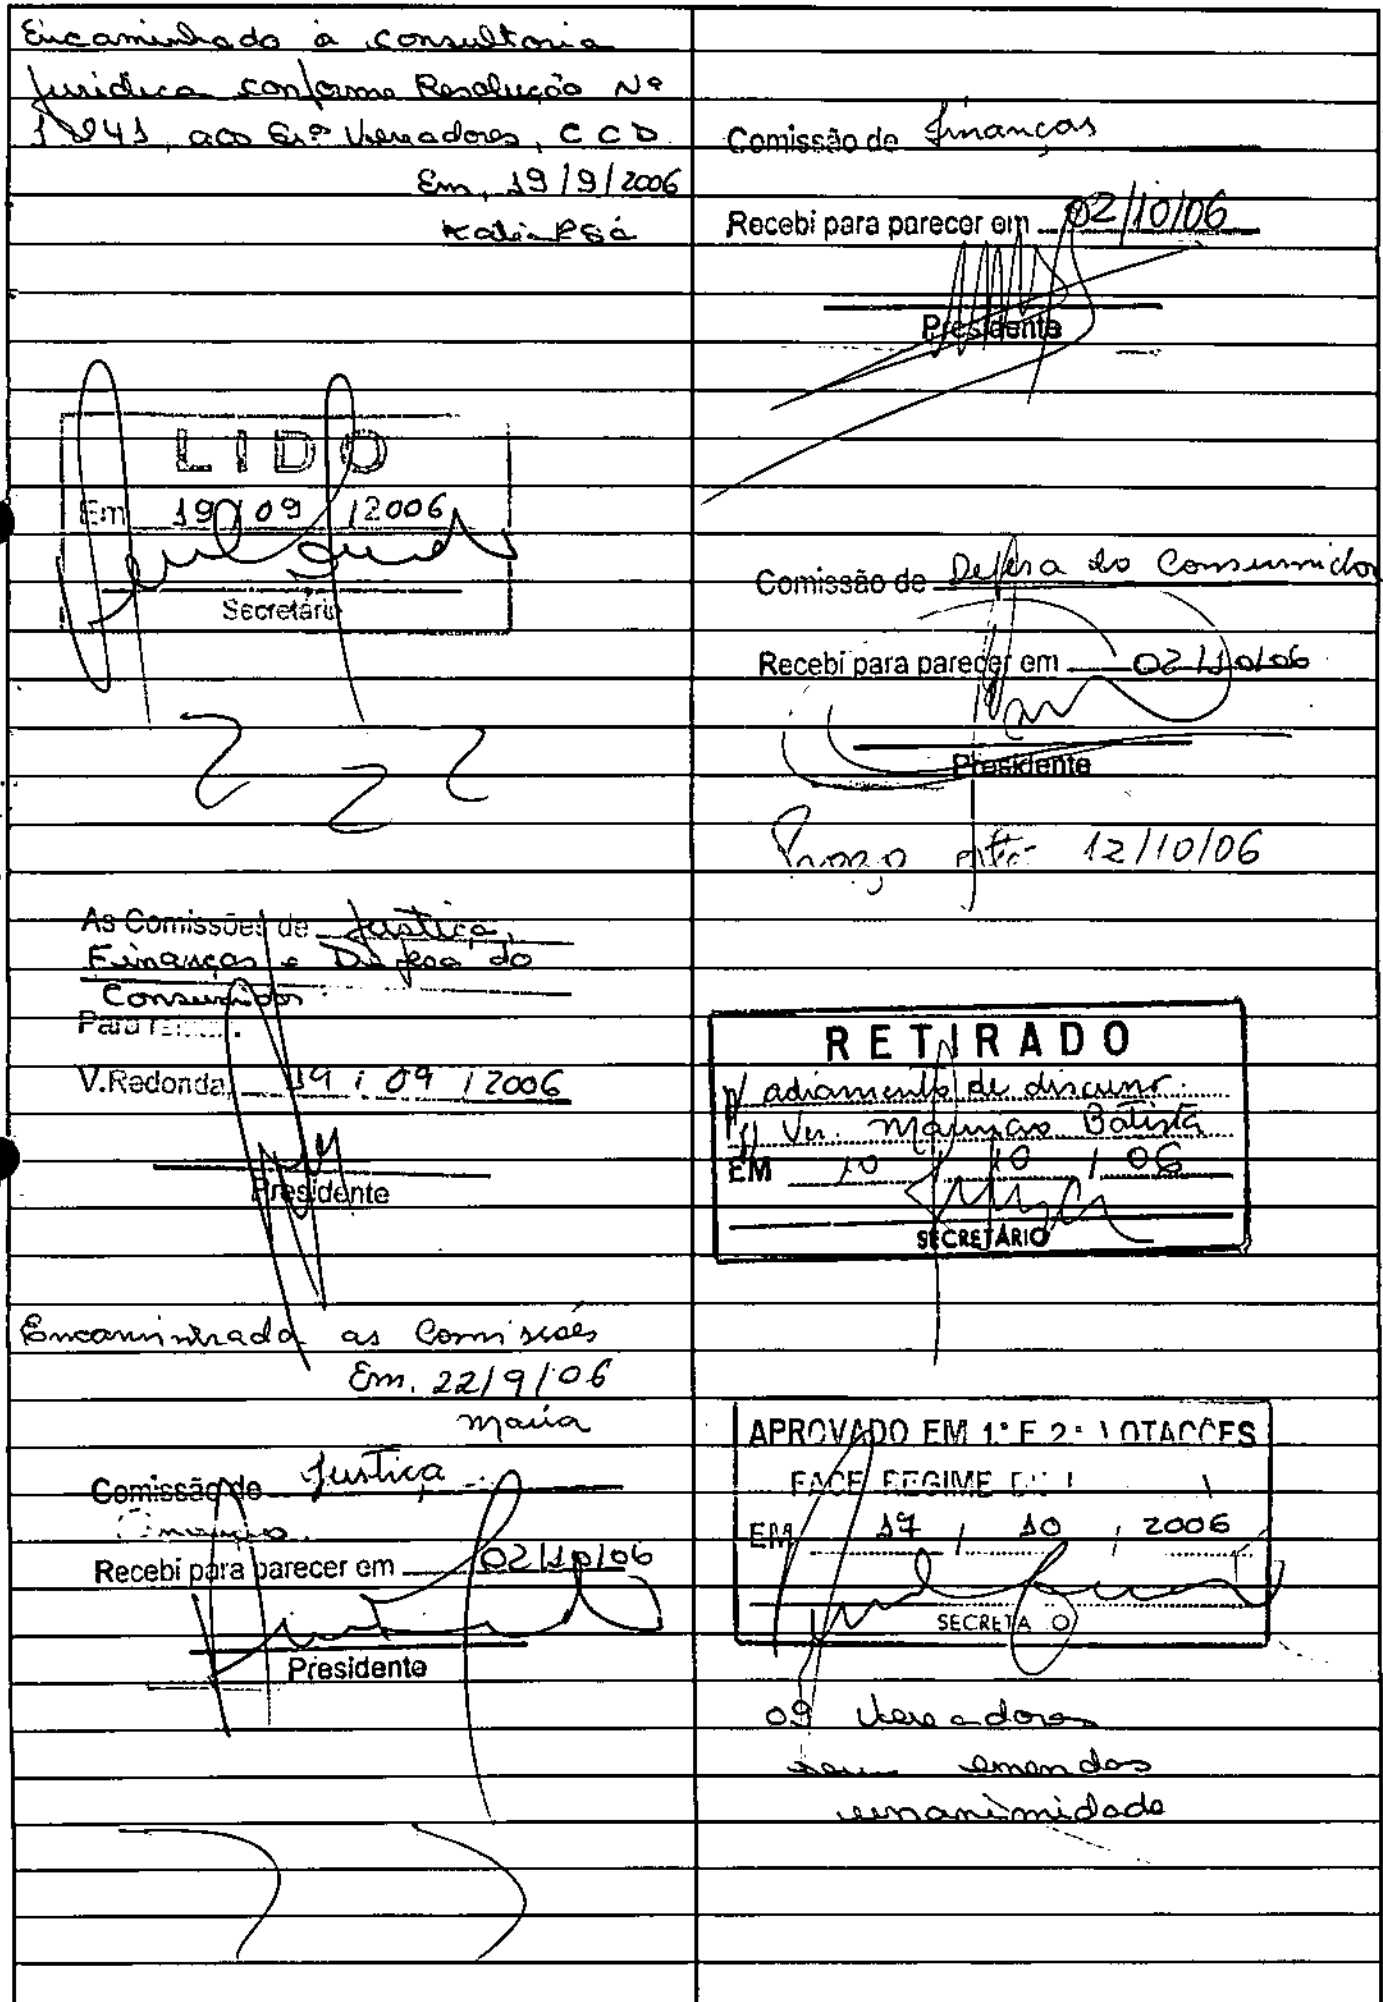 Encaminhado à consultoria
Jurídica conforme Resolução Nº
1841, aos Srs Vereadores, CCD
Em, 19/9/2006
LIDO
Em 19/09/2006
Secretário
As Comissões de Justiça,
Finanças e Defesa do
Consumidor
Para
V.Redonda, 19/09/2006
Presidente
Encaminhado as Comissões
Em, 22/9/06
Maria
Comissão de Justiça
Recebi para parecer em 02/10/06
Presidente
Comissão de Finanças
Recebi para parecer em 02/10/06
Presidente
Comissão de Defesa do Consumidor
Recebi para parecer em 02/10/06
Presidente
Prazo até 12/10/06
RETIRADO
p/ adiamento de discussão
p/ Ver. Maurício Batista
EM 10 10 / 06
SECRETÁRIO
APROVADO EM 1ª E 2ª VOTAÇÕES
FACE REGIME
EM 17 / 10 / 2006
SECRETA O
09 Vereadores
sem emendas
unanimidade